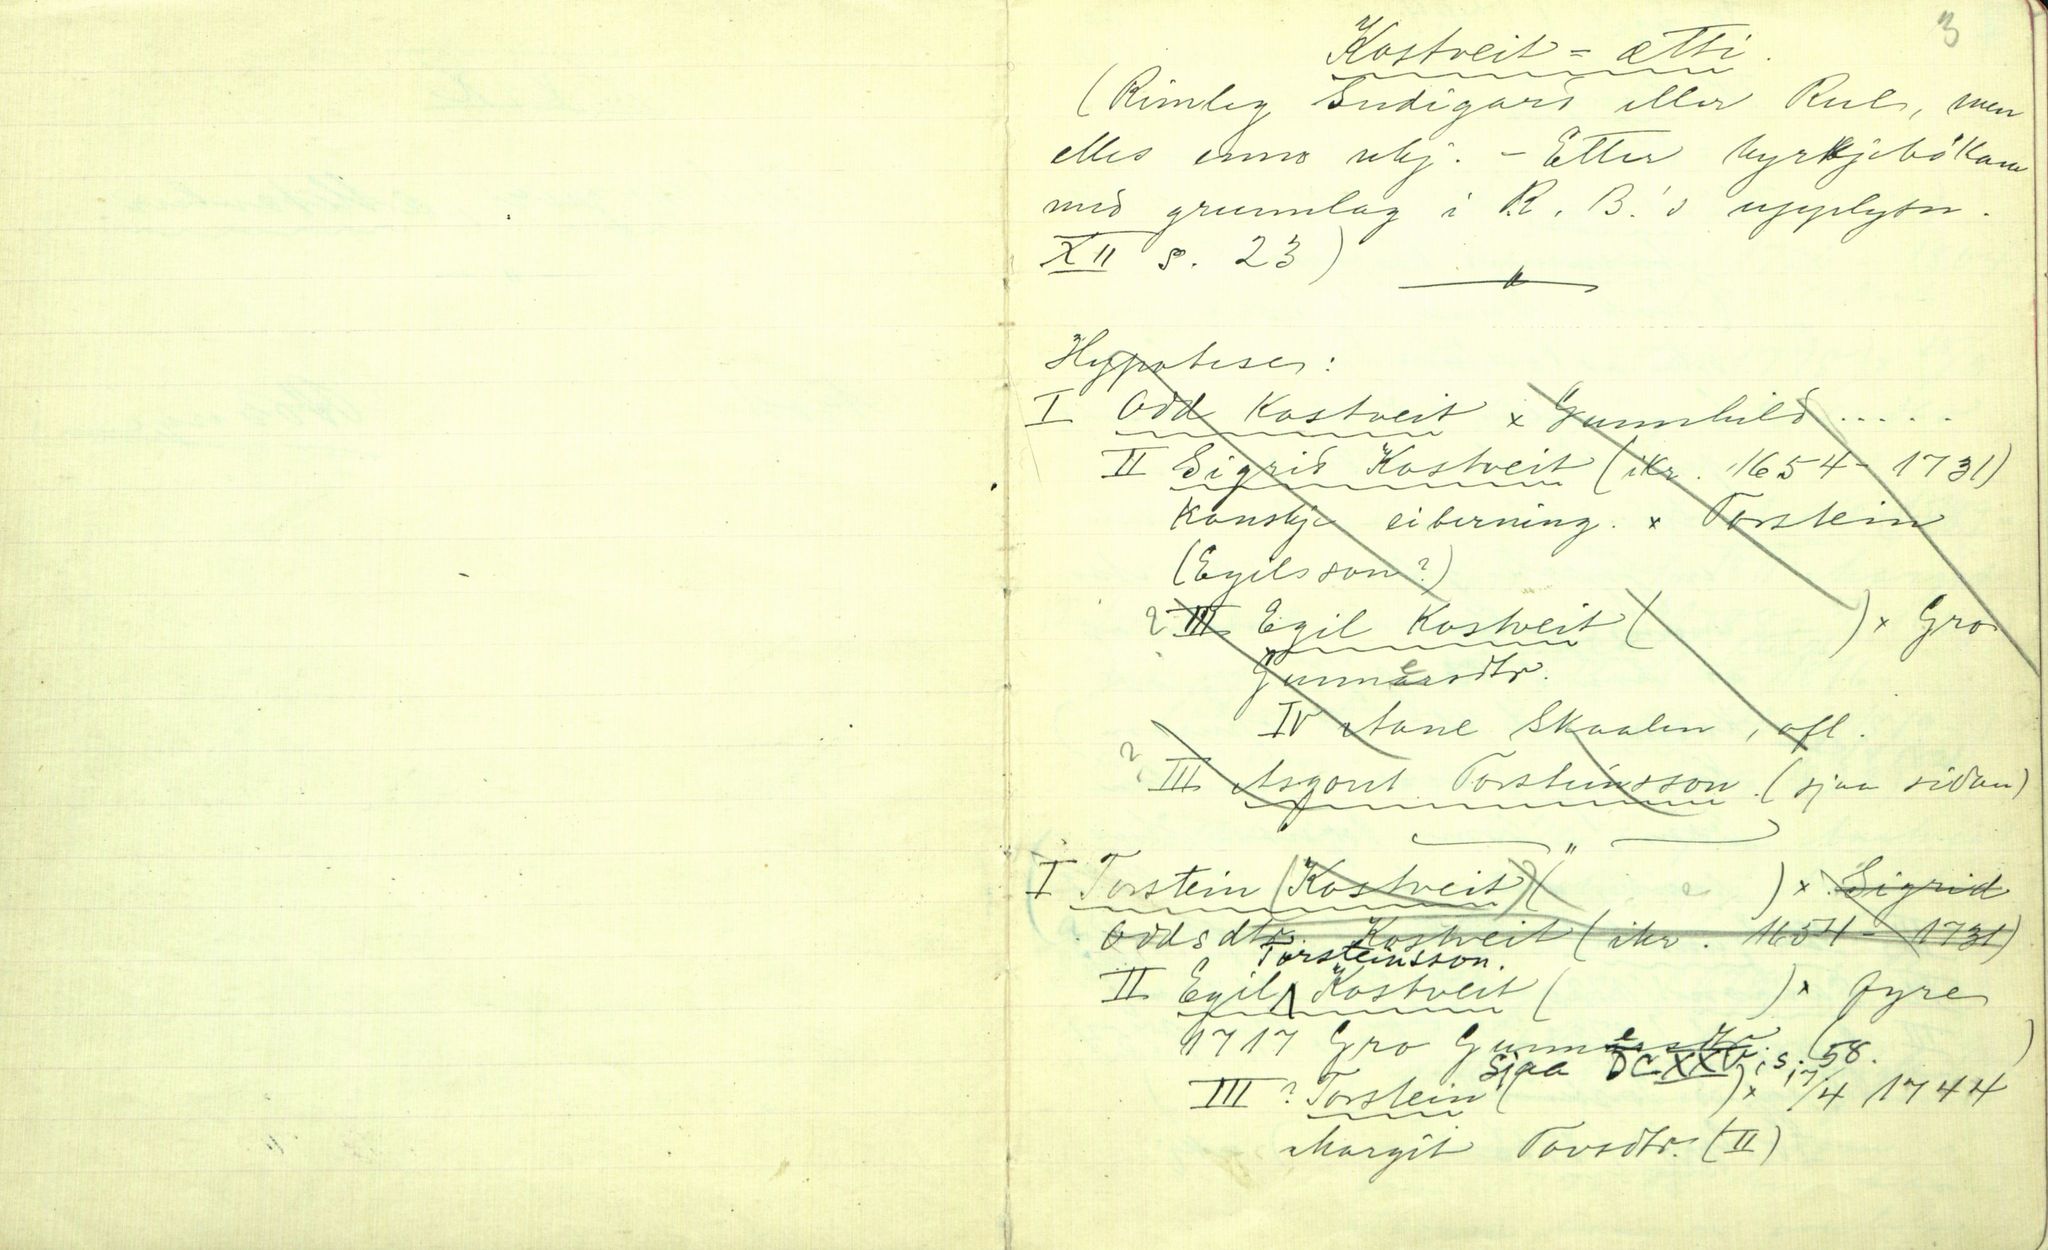 3
Kostveit-ætti.
(Rimleg Sudigard eller Rul, men
elles enno ukj. - Etter kyrkjebökane
med grunnlag i R. B.'s upplysn.
XII s. 23)
Hypoteser:
I Odd Kostveit x Gunnhild .....
II Sigrid Kostveit (ikr. 1654-1731)
Kanskje eiberning. x Torstein
(Egilsson?)
? III Egil Kostveit ( ) x Gro
Gunnarsdtr.
IV Aane Skaalen, ofl.
? III Asgout Torsteinsson. (sjaa sidan)
I Torstein (Kostveit) ( ) x Sigrid
Oddsdtr. Kostveit (ikr. 1654-1731)
Torsteinsson.
II Egil Kostveit ( ) x fyre
1717 Gro ( )
Sjaa DCXXV, s. 58.
III ? Torstein ( ) x 17/4 1744
Margit Tovsdtr. (II)